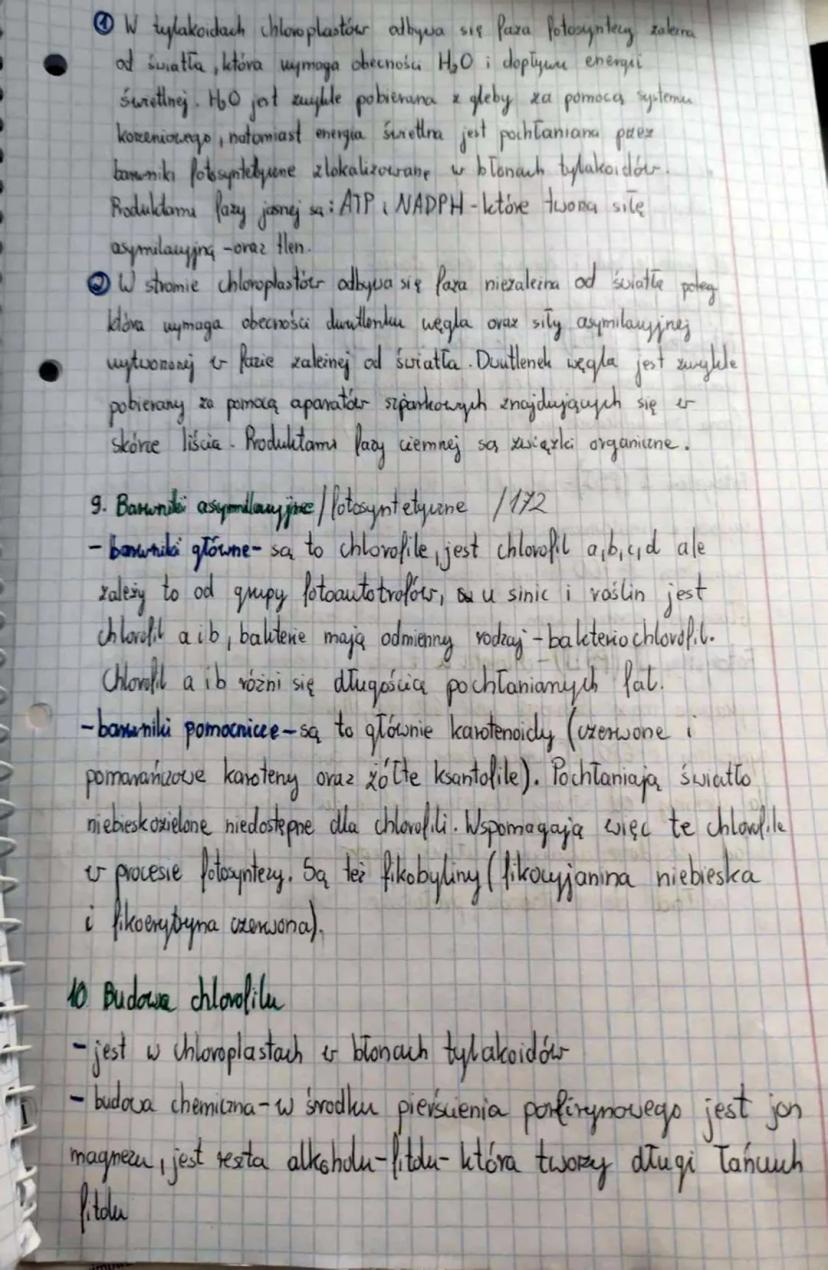 ① W tylakoidach chloroplastów odbywa się faza fotosyntezy zależna
od światła, która wymaga obecności H₂O i dopływu energii
świetlnej. H₂O jest zwykle pobierana z gleby za pomocą systemu
korzeniowego, natomiast energia świetlna jest pochłaniana przez
barwniki fotosyntetyczne zlokalizowane w błonach tylakoidów.
Produktami fazy jasnej są: ATP i NADPH - które tworzą siłę
asymilacyjną - oraz tlen.
② W stromie chloroplastów odbywa się faza niezależna od światła
która wymaga obecności dwutlenku węgla oraz siły asymilacyjnej
wytworzonej w fazie zależnej od światła. Dwutlenek węgla jest zwykle
pobierany za pomocą aparatów szparkowych znajdujących się w
skórce liścia. Produktami fazy ciemnej są związki organiczne.
9. Barwniki asymilacyjne/fotosyntetyczne /172
- barwniki główne - są to chlorofile, jest chlorofil a,b,c,d ale
zależy to od grupy fotoautotrofów, u sinic i roślin jest
chlorofil a i b, bakterie mają odmienny rodzaj - bakteriochlorofil.
Chlorofil a i b różni się długością pochłanianych fal.
- barwniki pomocnicze - są to głównie karotenoidy (czerwone i
pomarańczowe karoteny oraz żółte ksantofile). Pochłaniają światło
niebieskozielone niedostępne dla chlorofili. Wspomagają więc te chlorofile
w procesie fotosyntezy. Są też fikobyliny (fikocyjanina niebieska
i fikoerytryna czerwona).
10 Budowa chlorofilu
- jest w chloroplastach w błonach tylakoidów
- budowa chemiczna - w środku pierścienia porfirynowego jest jon
magnezu, jest reszta alkoholu - fitolu - która tworzy długi łańcuch
fitolu